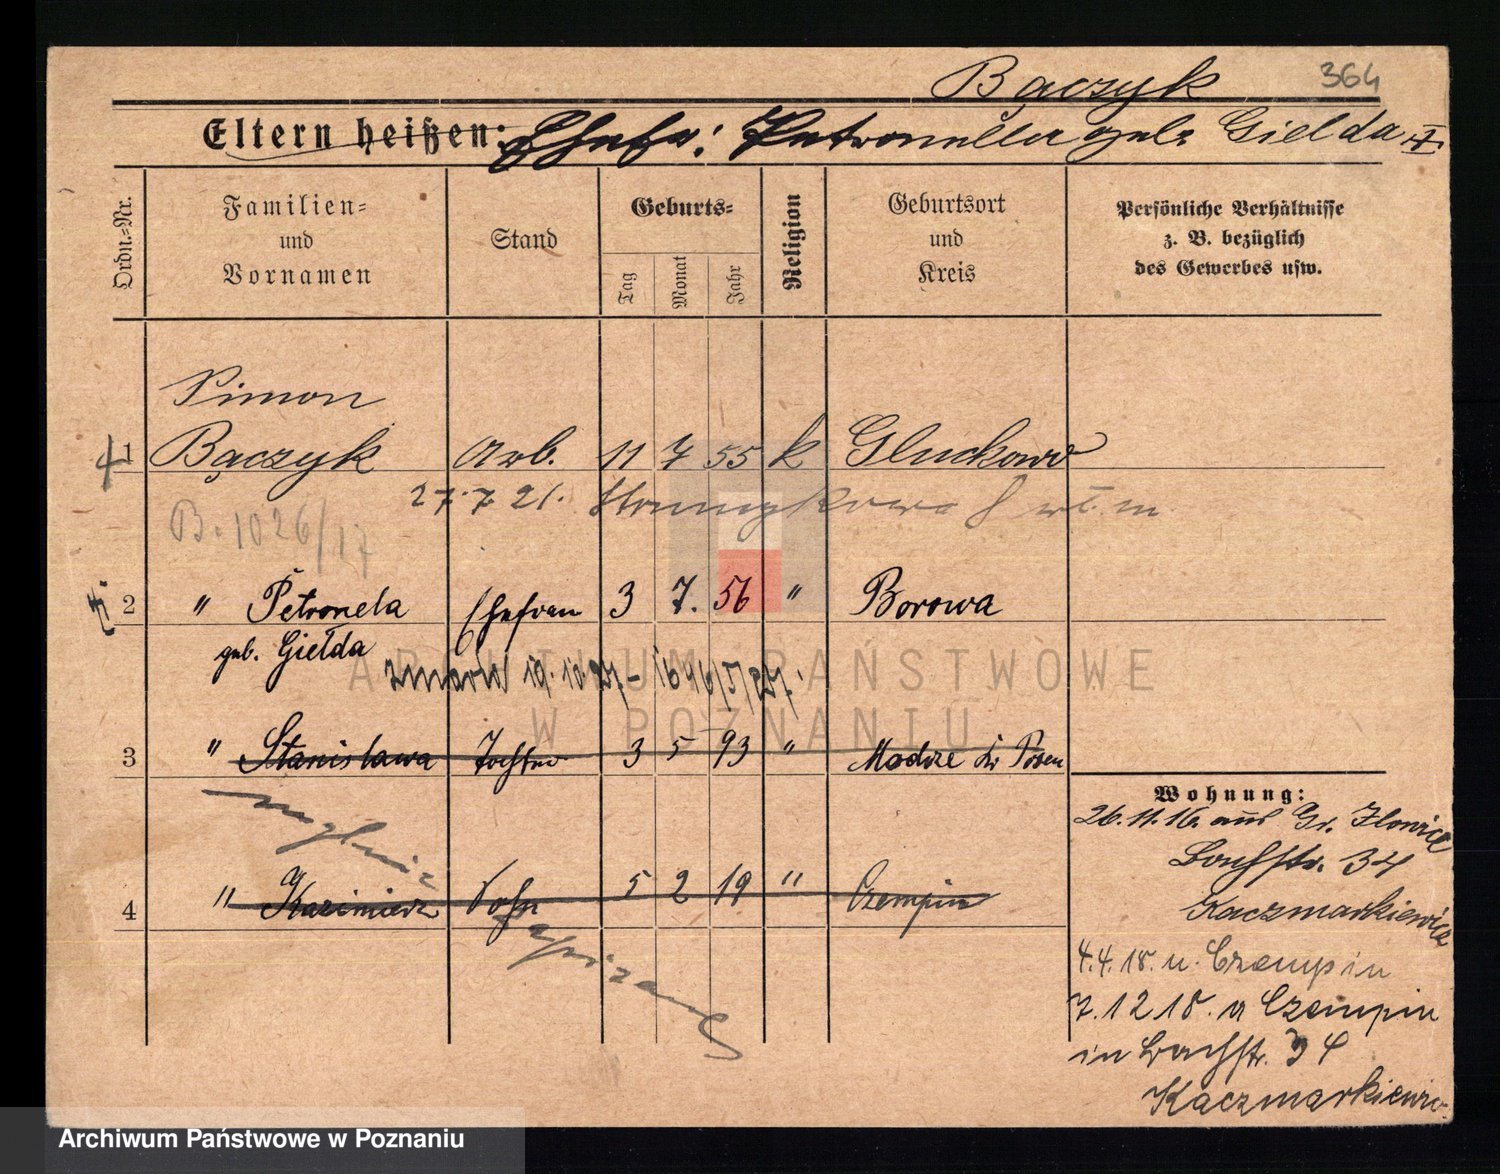 Bączyk 364
Eltern heißen: Ehefr: Petronella geb. Gielda
Ordn.-Nr.
Familien- und Vornamen
Stand
Geburts-
Tag
Monat
Jahr
Religion
Geburtsort und Kreis
Persönliche Verhältnisse
z. B. bezüglich
des Gewerbes usw.
Simon
1 Bączyk Arb. 11 7 55 k Gluckowo
27.7.21.
B. 1026/17
2 " Petronela Ehefrau 3 7. 56 " Borowa
geb. Giełda
zmarła 19.10.27
3 " Stanisława Tochter 3 5 93 " Modrze Kr Posen
Wohnung:
26.11.16. aus
Bachstr. 34
Kaczmarkiewicz
4 " Kazimierz Sohn 5 2 19 " Czempin
4.4.18. n. Czempin
7.12 18. v Czempin
in Bachstr. 34
Kaczmarkiewicz
ARCHIWUM PAŃSTWOWE
W POZNANIU
Archiwum Państwowe w Poznaniu